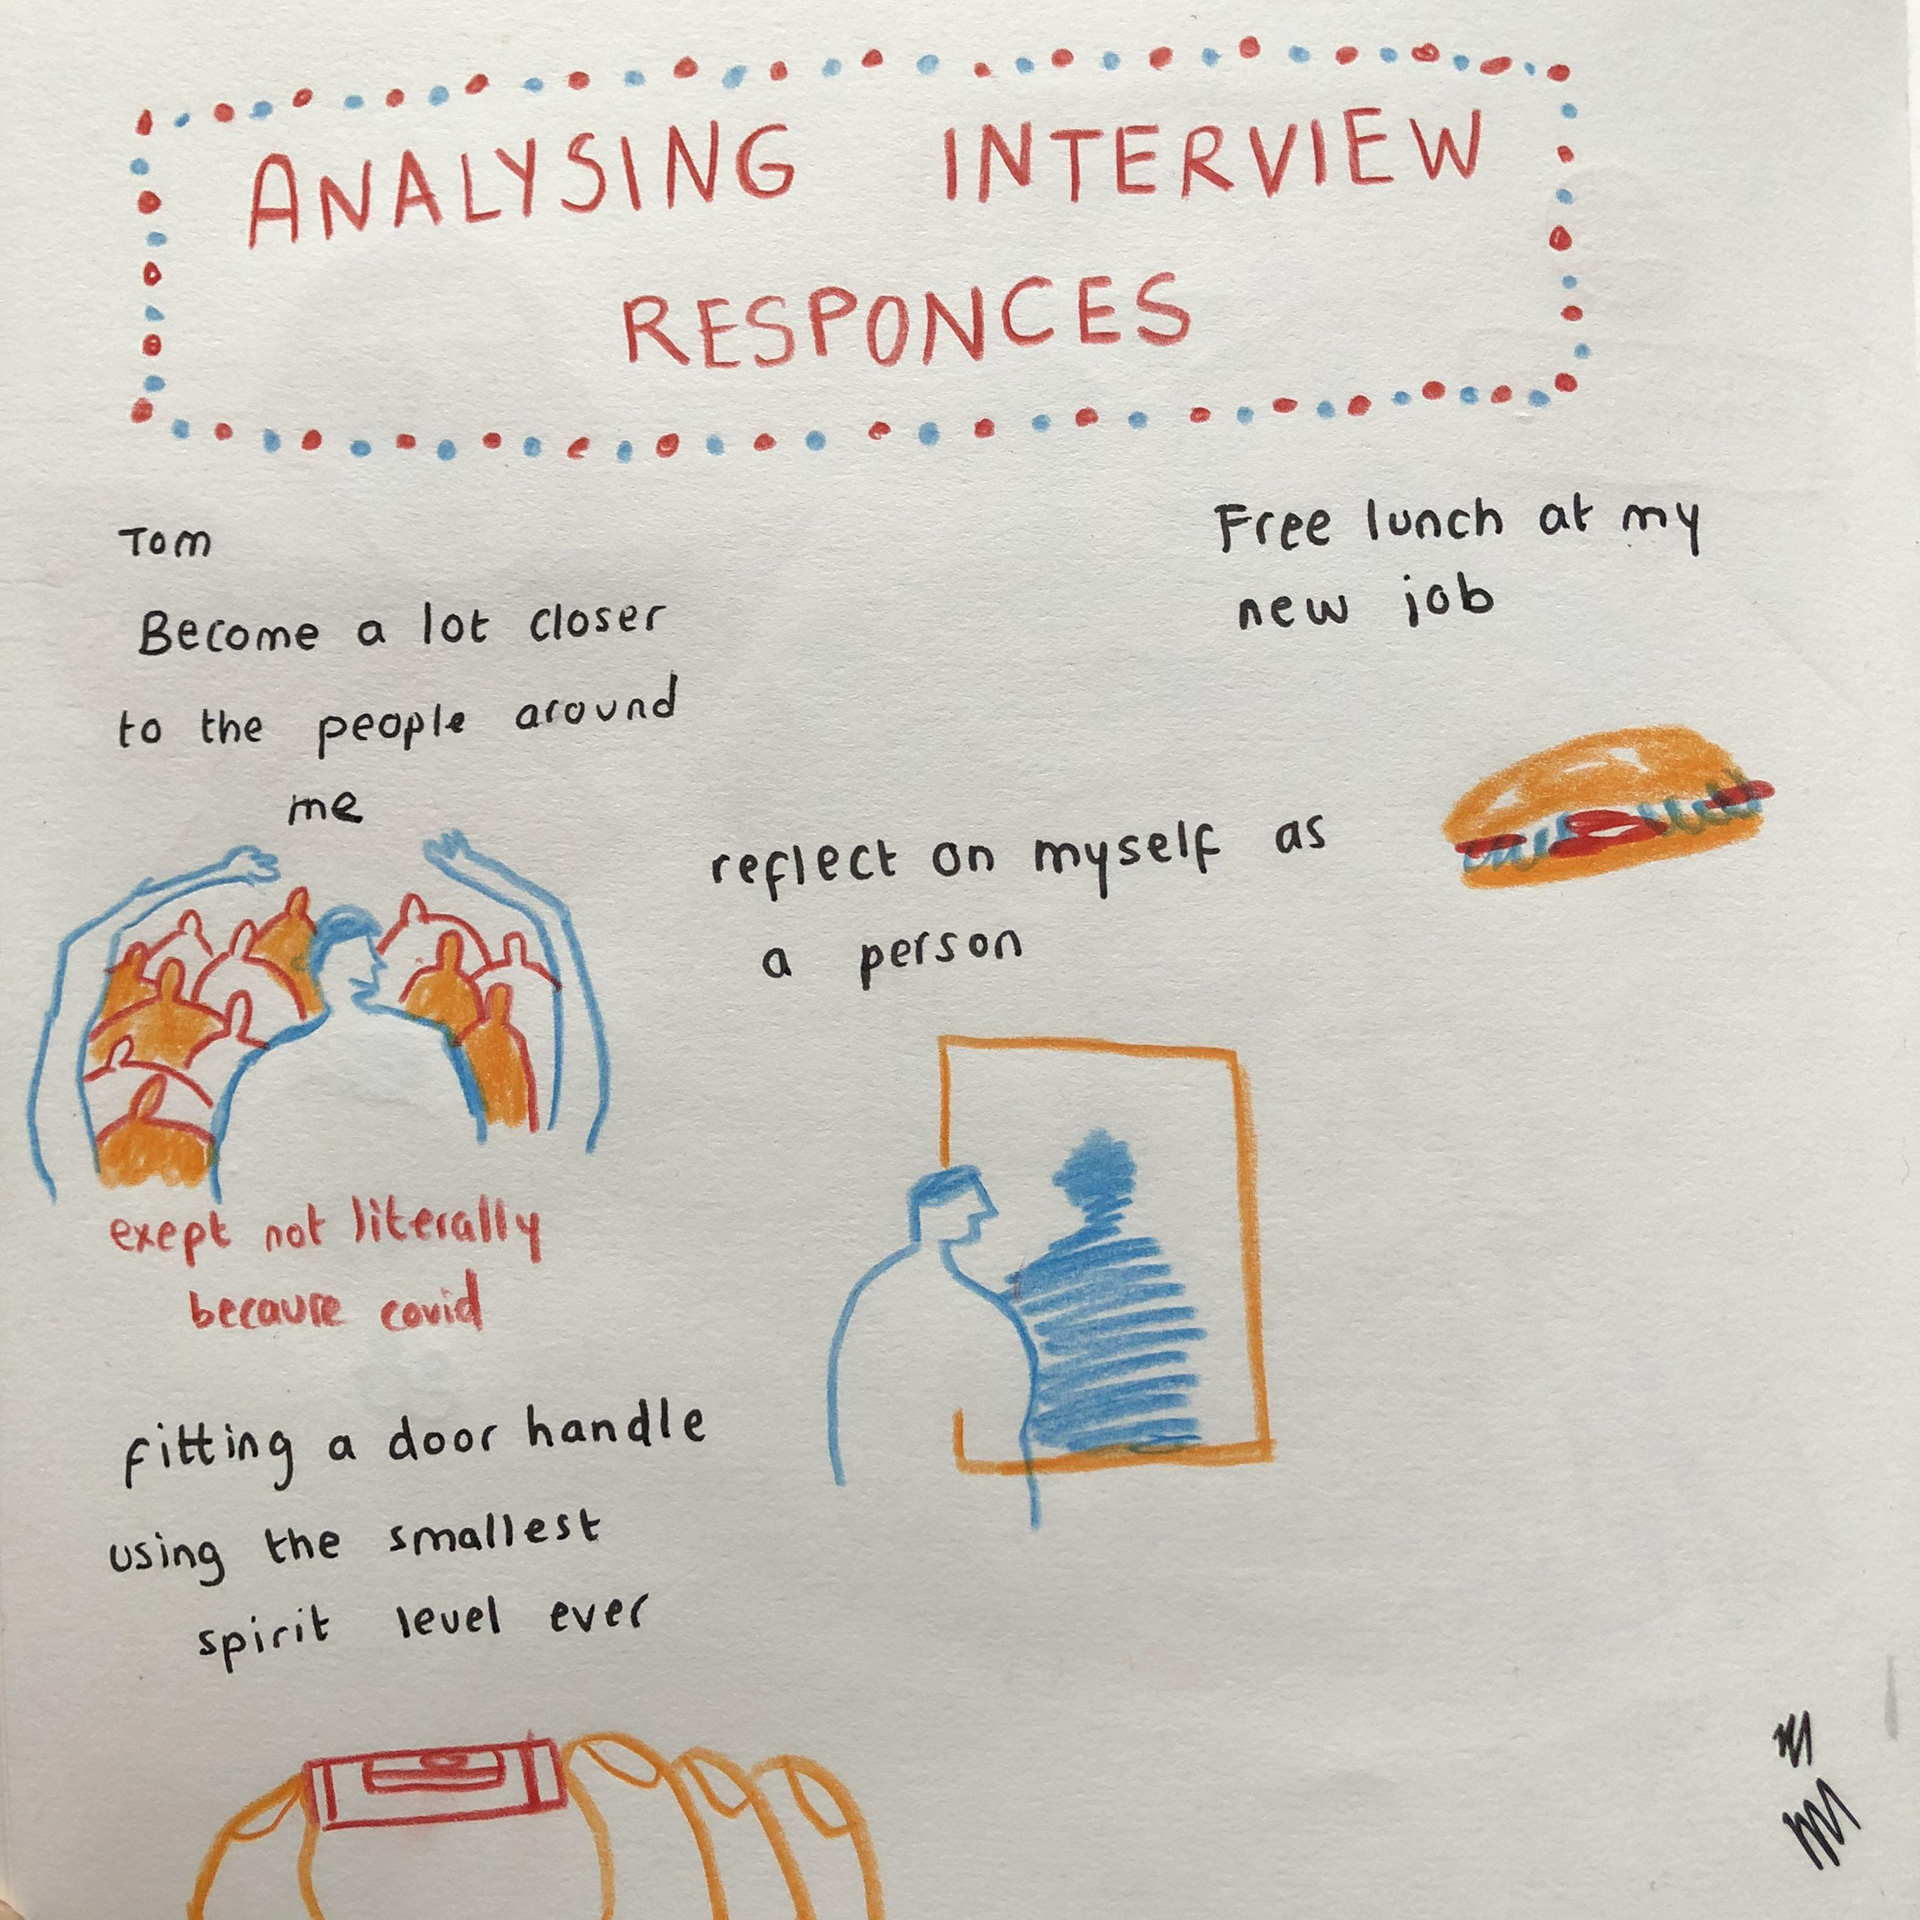 ANALYSING INTERVIEW
RESPONCES
Tom
Become a lot closer
to the people around
me
exept not literally
because covid
Free lunch at my
new job
reflect on myself as
a person
fitting a door handle
using the smallest
spirit level ever